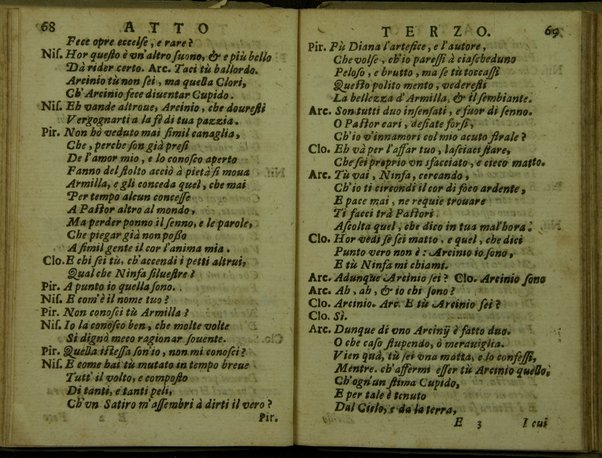 68 ATTO
Fece opre eccelse, e rare?
Nis. Hor questo è vn'altro suono, & e più bello
Dà rider certo. Arc. Taci tù ballordo.
Arcinio tù non sei, ma quella Clori,
Ch'Arcinio fece diuentar Cupido.
Nis. Eh vande altroue, Arcinio, che douresti
Vergognarti a la fè di tua pazzia.
Pir. Non hò veduto mai simil canaglia,
Che, perche son già presi
De l'amor mio, e lo conosco aperto
Fanno del stolto acciò à pietà si moua
Armilla, e gli conceda quel, che mai
Per tempo alcun concesse
A Pastor altro al mondo,
Ma perder ponno il senno, e le parole,
Che piegar già non posso
A simil gente il cor l'anima mia.
Clo. E chi sei tù, ch'accendi i petti altrui,
Qual che Ninfa siluestre?
Pir. A punto io quella sono.
Nis. E com'è il nome tuo?
Pir. Non conosci tù Armilla?
Nis. Io la conosco ben, che molte volte
Si dignò meco ragionar souente.
Pir. Quella istessa son'io, non mi conosci?
Nis. E come hai tù mutato in tempo breue
Tutt'il volto, e composto
Di tanti, e tanti peli,
Ch'vn Satiro m'assembri à dirti il vero?
E 2 Pir.
TERZO. 69
Pir. Fù Diana l'artefice, e l'autore,
Che volse, ch'io paressi à ciascheduno
Peloso, e brutto, ma se tù toccassi
Questo polito mento, vederesti
La bellezza d'Armilla, & il sembiante.
Arc. Son tutti duo insensati, e fuor di senno.
O Pastor cari, desiate forsi,
Ch'io v'innamori col mio acuto strale?
Clo. Eh và per l'affar tuo, lasciaci stare,
Che sei proprio vn sfacciato, e cieco matto.
Arc. Tù vai, Ninfa, cercando,
Ch'io ti circondi il cor di foco ardente,
E pace mai, ne requie trouare
Ti facci trà Pastori.
Ascolta quel, che dico in tua mal'hora.
Clo. Hor vedi se sei matto, e quel, che dici
Punto vero non è: Arcinio io sono,
E tù Ninfa mi chiami.
Arc. Adunque Arcinio sei? Clo. Arcinio sono
Arc. Ah, ah, & io chi sono?
Clo. Arcinio. Arc. E tù Arcinio sei?
Clo. Sì.
Arc. Dunque di vno Arcinÿ è fatto duo.
O che caso stupendo, ò merauiglia.
Vien quà, tù sei vna matta, e lo confessi,
Mentre, ch'affermi esser tù Arcinio quello,
Ch'ogn'un stima Cupido,
E per tale è tenuto
Dal Cielo, e da la terra,
E 3 I cui